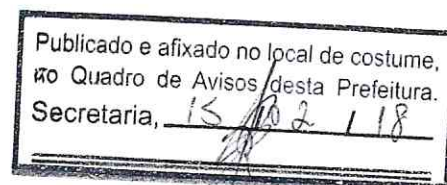 Publicado e afixado no local de costume,
no Quadro de Avisos desta Prefeitura.
Secretaria, 15 / 02 / 18